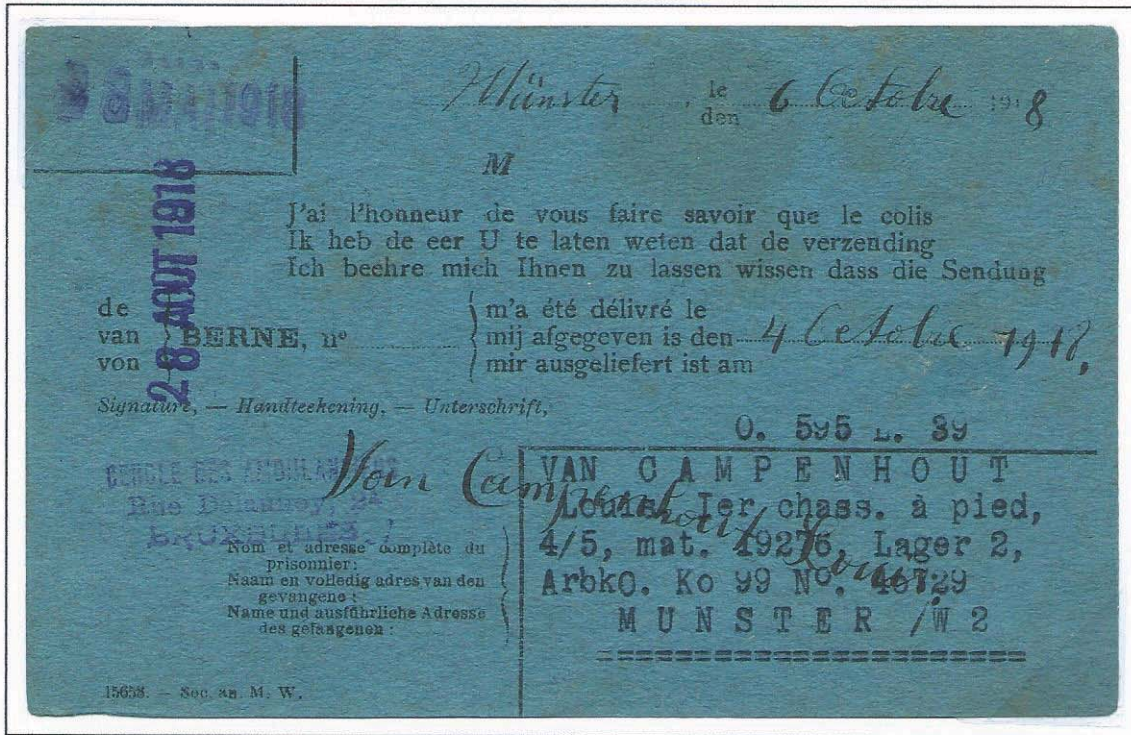 28 MAI 1918
28 AOUT 1918
Münster, le 6 Octobre 1918
den
M
J'ai l'honneur de vous faire savoir que le colis
Ik heb de eer U te laten weten dat de verzending
Ich beehre mich Ihnen zu lassen wissen dass die Sendung
de
van BERNE, nº
von
m'a été délivré le
mij afgegeven is den 4 Octobre 1918.
mir ausgeliefert ist am
Signature, — Handteekening, — Unterschrift,
Van Campenhout Louis.
CERCLE DES
Rue Delaunoy,
BRUXELLES
Nom et adresse complète du
prisonnier:
Naam en volledig adres van den
gevangene:
Name und ausführliche Adresse
des gefangenen:
O. 595 L. 39
VAN CAMPENHOUT
Louis, Ier chass. à pied,
4/5, mat. 19276, Lager 2,
Arbko. Ko 99 Nº. 46729
MUNSTER /W 2
15658. — Soc. an. M. W.